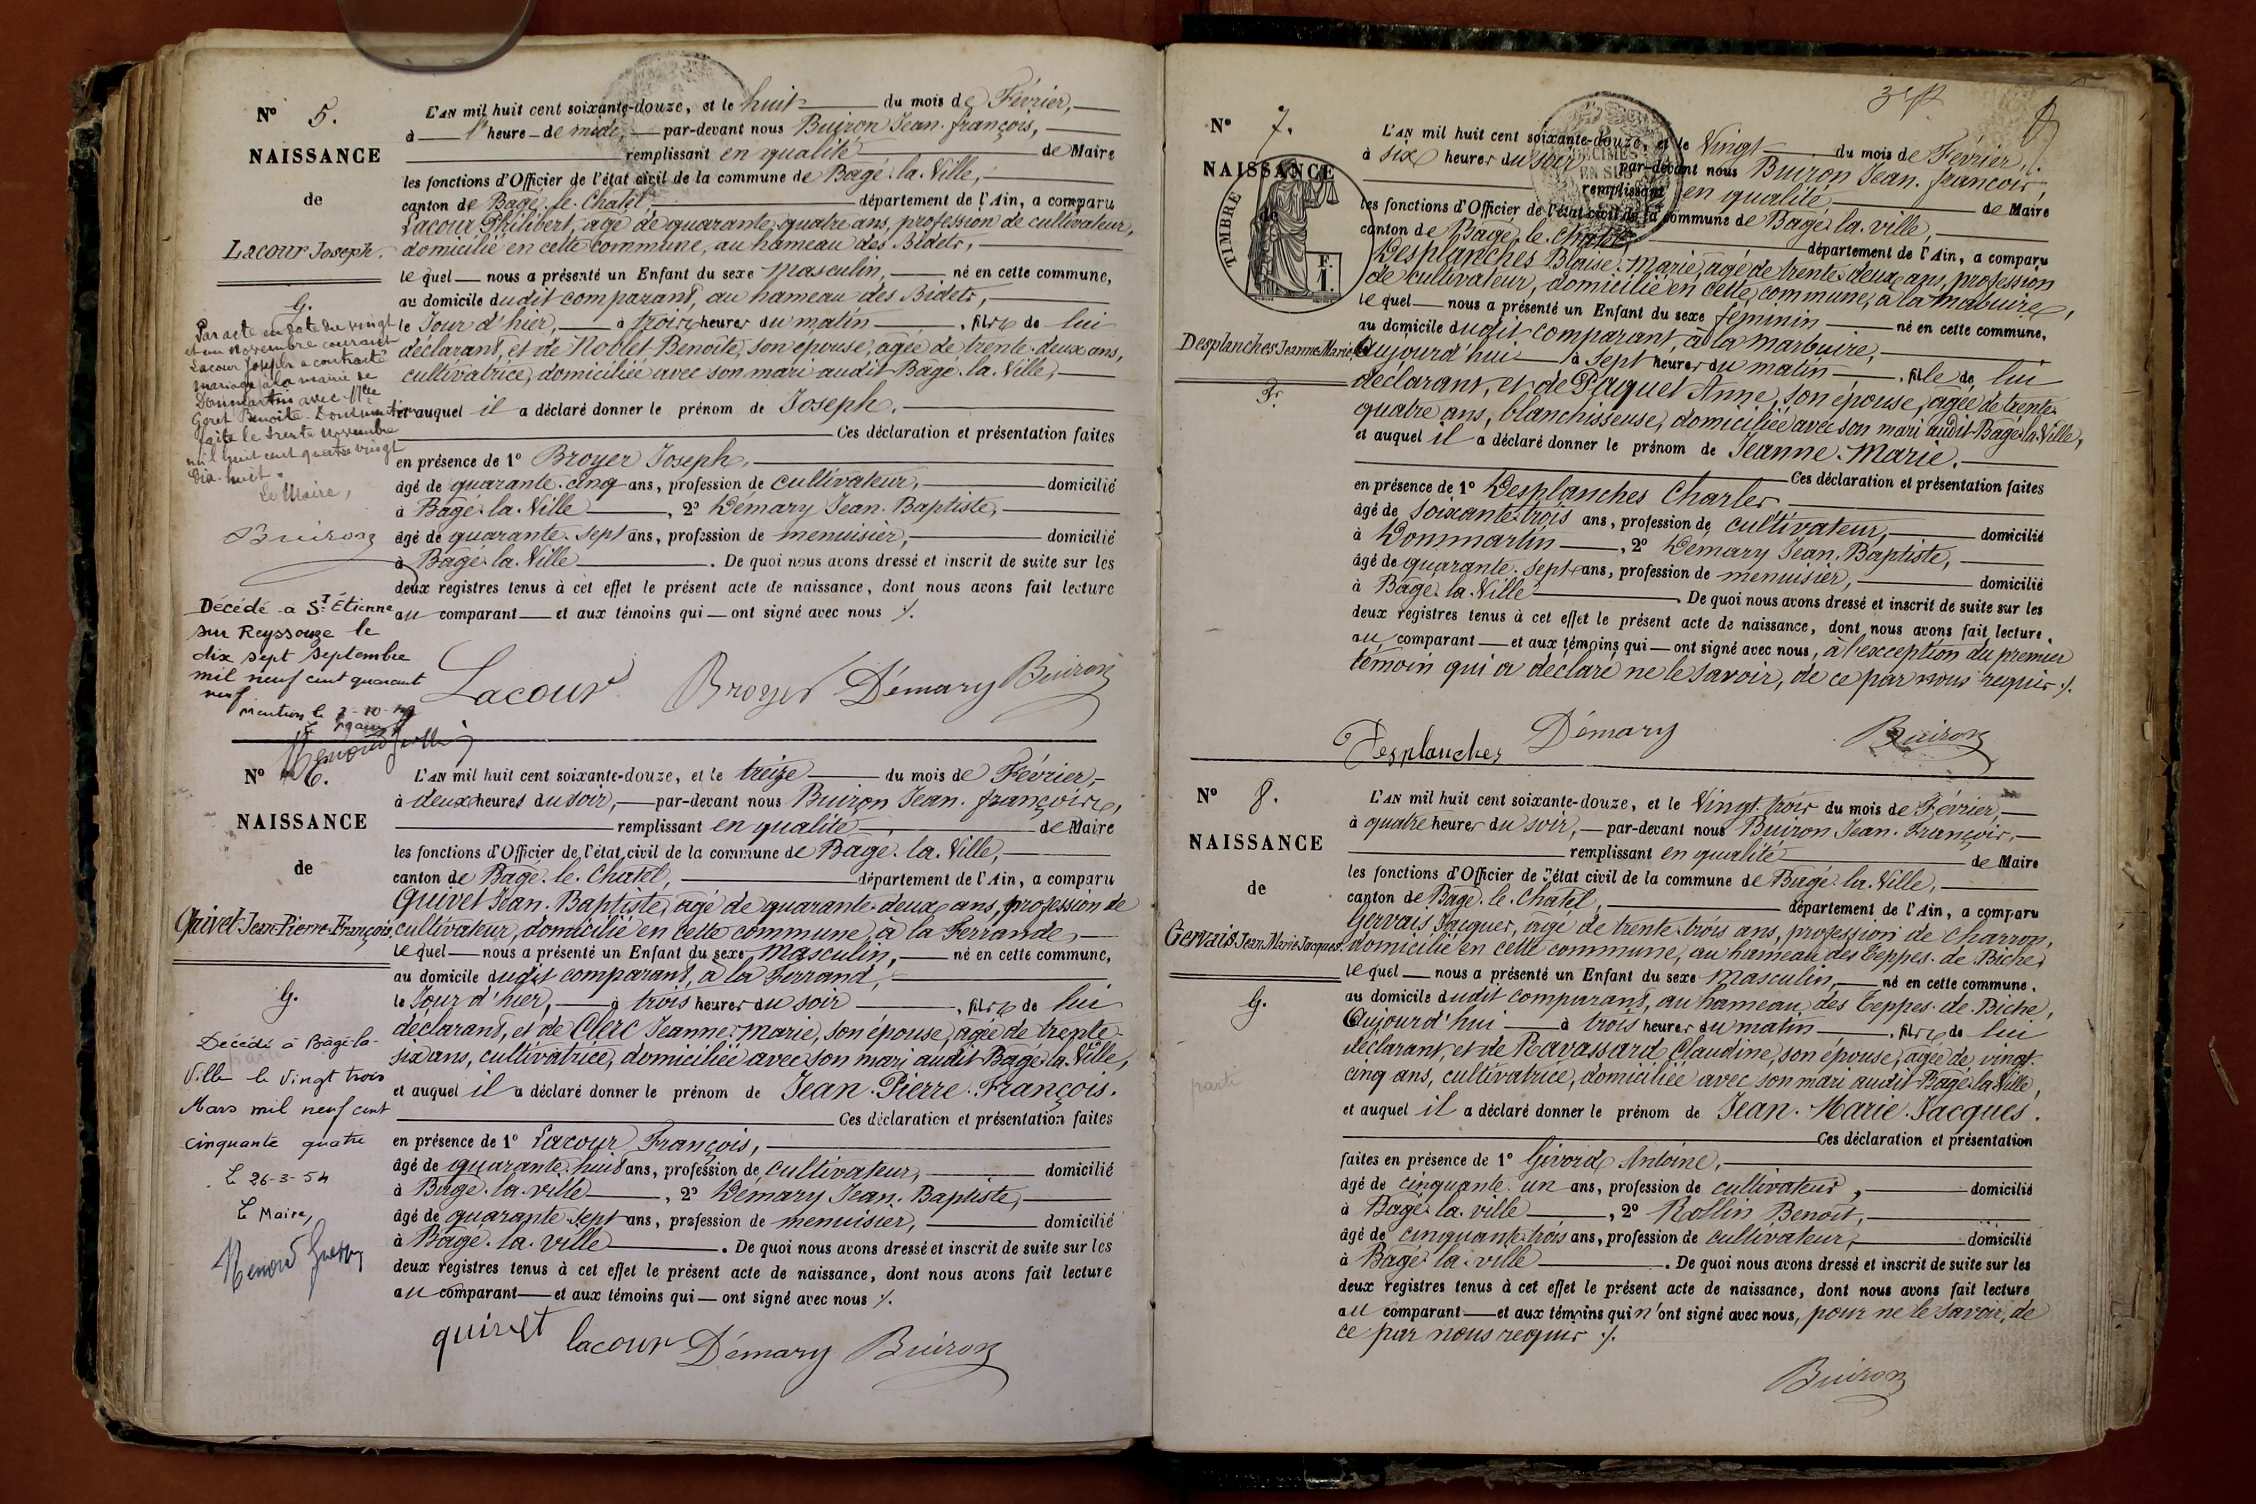 N° 5.
NAISSANCE
de
Lacour Joseph.
G.
Par acte en date du vingt
et un novembre courant
Lacour Joseph a contracté
mariage à la mairie de
Dommartin avec Mlle
Goret Benoîte. Dont mention
faite le trente novembre
mil huit cent quatre vingt
dix-huit.
Le Maire,
Buiron
Décédé à St Étienne
sur Reyssouze le
dix sept septembre
mil neuf cent quarante
neuf.
Mention le 3-10-49
Le Maire
L'AN mil huit cent soixante-douze, et le huit du mois de Février,
à 1 heure de midi, par-devant nous Buiron Jean-françois,
remplissant en qualité de Maire
les fonctions d'Officier de l'état civil de la commune de Bagé-la-Ville,
canton de Bagé-le-Chatel, département de l'Ain, a comparu
Lacour Philibert, âgé de quarante-quatre ans, profession de cultivateur,
domicilié en cette commune, au hameau des Bidets,
le quel nous a présenté un Enfant du sexe masculin, né en cette commune,
au domicile dudit comparant, au hameau des Bidets,
le Jour d'hier, à trois heures du matin, fils de lui
déclarant, et de Noblet Benoîte, son épouse, agée de trente-deux ans,
cultivatrice, domiciliée avec son mari audit Bagé-la-Ville,
et auquel il a déclaré donner le prénom de Joseph.
Ces déclaration et présentation faites
en présence de 1° Broyer Joseph,
âgé de quarante-cinq ans, profession de cultivateur, domicilié
à Bagé-la-Ville, 2° Démary Jean-Baptiste,
âgé de quarante-sept ans, profession de menuisier, domicilié
à Bagé-la-Ville. De quoi nous avons dressé et inscrit de suite sur les
deux registres tenus à cet effet le présent acte de naissance, dont nous avons fait lecture
au comparant et aux témoins qui ont signé avec nous ./.
Lacour Broyer Démary Buiron
N° 6.
NAISSANCE
de
Quivet Jean-Pierre-François.
G.
Décédé à Bâgé-la-
Ville le vingt trois
Mars mil neuf cent
cinquante quatre
L 26-3-54
Le Maire,
L'AN mil huit cent soixante-douze, et le treize du mois de Février,
à deux heures du soir, par-devant nous Buiron Jean-françois,
remplissant en qualité de Maire
les fonctions d'Officier de l'état civil de la commune de Bagé-la-Ville,
canton de Bagé-le-Chatel, département de l'Ain, a comparu
Quivet Jean-Baptiste, âgé de quarante-deux ans, profession de
cultivateur, domicilié en cette commune, à la Ferrande,
le quel nous a présenté un Enfant du sexe masculin, né en cette commune,
au domicile dudit comparant, à la Ferrand,
le Jour d'hier, à trois heures du soir, fils de lui
déclarant, et de Clerc Jeanne-Marie, son épouse, agée de trente-
six ans, cultivatrice, domiciliée avec son mari audit Bagé-la-Ville,
et auquel il a déclaré donner le prénom de Jean-Pierre-François.
Ces déclaration et présentation faites
en présence de 1° Lacour François,
âgé de quarante-huit ans, profession de cultivateur, domicilié
à Bagé-la-ville, 2° Démary Jean-Baptiste,
âgé de quarante-sept ans, profession de menuisier, domicilié
à Bagé-la-ville. De quoi nous avons dressé et inscrit de suite sur les
deux registres tenus à cet effet le présent acte de naissance, dont nous avons fait lecture
au comparant et aux témoins qui ont signé avec nous ./.
quivet lacour Démary Buiron
N° 7.
NAISSANCE
de
TIMBRE
F.
1.
Desplanches Jeanne-Marie
F.
L'AN mil huit cent soixante-douze, et le Vingt du mois de Février,
à six heures du soir, par-devant nous Buiron Jean-françois,
remplissant en qualité de Maire
les fonctions d'Officier de l'état civil de la commune de Bagé-la-ville,
canton de Bagé-le-Chatel, département de l'Ain, a comparu
Desplanches Blaise-Marie, âgé de trente-deux ans, profession
de cultivateur, domicilié en cette commune, à la Mabuire,
le quel nous a présenté un Enfant du sexe féminin né en cette commune,
au domicile dudit comparant, à la Marbuire,
Aujourd'hui à sept heures du matin, fille de lui
déclarant, et de Paquet Anne, son épouse, agée de trente-
quatre ans, blanchisseuse, domiciliée avec son mari audit Bagé-la-Ville,
et auquel il a déclaré donner le prénom de Jeanne-Marie.
Ces déclaration et présentation faites
en présence de 1° Desplanches Charles
âgé de soixante-trois ans, profession de cultivateur, domicilié
à Dommartin, 2° Démary Jean-Baptiste,
âgé de quarante-sept ans, profession de menuisier, domicilié
à Bagé-la-Ville. De quoi nous avons dressé et inscrit de suite sur les
deux registres tenus à cet effet le présent acte de naissance, dont nous avons fait lecture,
au comparant et aux témoins qui ont signé avec nous, à l'exception du premier
témoin qui a déclaré ne le savoir, de ce par nous requis ./.
Desplanches Démary Buiron
N° 8.
NAISSANCE
de
Gervais Jean-Marie-Jacques.
G.
parti
L'AN mil huit cent soixante-douze, et le Vingt-trois du mois de Février,
à quatre heures du soir, par-devant nous Buiron Jean-François,
remplissant en qualité de Maire
les fonctions d'Officier de l'état civil de la commune de Bagé-la-Ville,
canton de Bagé-le-Chatel, département de l'Ain, a comparu
Gervais Jacques, âgé de trente-trois ans, profession de charron,
domicilié en cette commune, au hameau des Teppes-de-Biche,
le quel nous a présenté un Enfant du sexe masculin, né en cette commune.
au domicile dudit comparant, au hameau des Teppes-de-Biche,
Aujourd'hui à trois heures du matin, fils de lui
déclarant, et de Ravassard Claudine, son épouse, agée de vingt-
cinq ans, cultivatrice, domiciliée avec son mari audit Bagé-la-Ville,
et auquel il a déclaré donner le prénom de Jean-Marie-Jacques.
Ces déclaration et présentation
faites en présence de 1° Givord Antoine,
âgé de cinquante-un ans, profession de cultivateur, domicilié
à Bagé-la-ville, 2° Rollin Benoit,
âgé de cinquante-trois ans, profession de cultivateur, domicilié
à Bagé-la-ville. De quoi nous avons dressé et inscrit de suite sur les
deux registres tenus à cet effet le présent acte de naissance, dont nous avons fait lecture
au comparant et aux témoins qui n'ont signé avec nous, pour ne le savoir, de
ce par nous requis ./.
Buiron